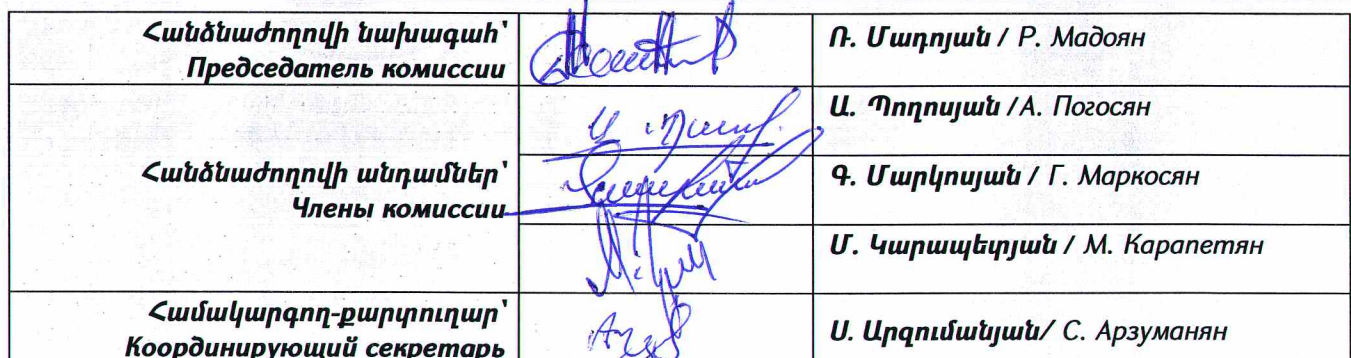 Հանձնաժողովի նախագահ՝
Председатель комиссии
Ռ. Մադոյան / Р. Мадоян
Ա. Պողոսյան /А. Погосян
Հանձնաժողովի անդամներ՝
Члены комиссии
Գ. Մարկոսյան / Г. Маркосян
Մ. Կարապետյան / М. Карапетян
Համակարգող-քարտուղար՝
Координирующий секретарь
Ս. Արզումանյան/ С. Арзуманян